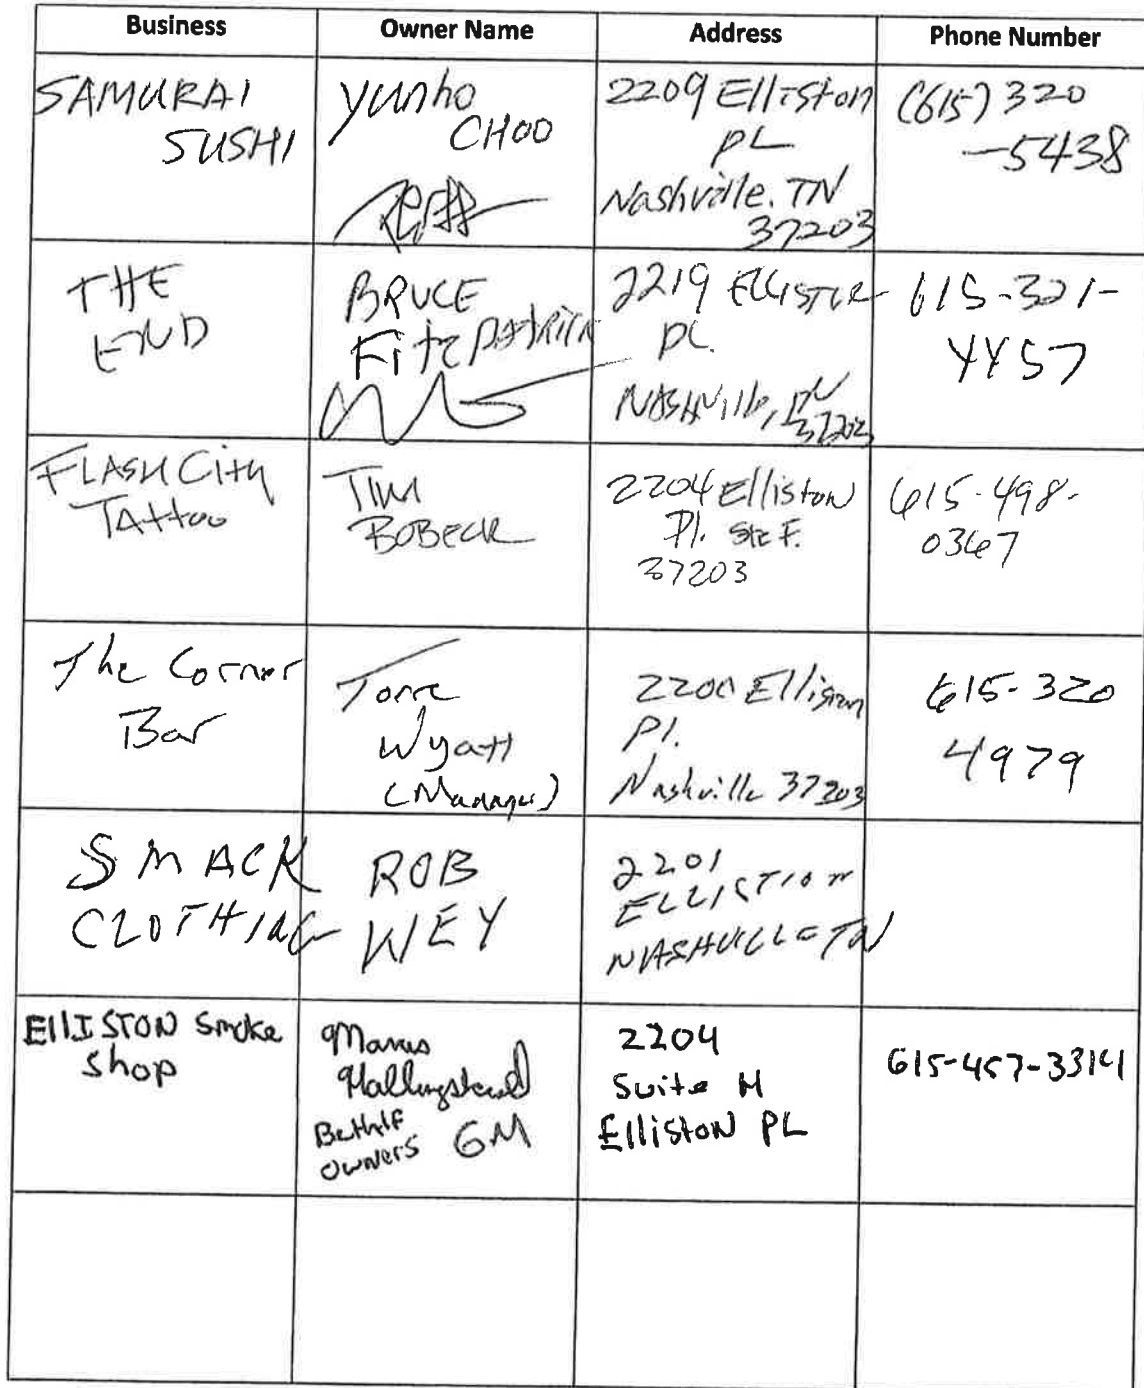 Business Owner Name Address Phone Number
SAMURAI
SUSHI
yunho
CHOO
2209 Elliston
PL
Nashville, TN
37203
(615) 320
-5438
THE
END
BRUCE
Fitzpatrick
2219 Elliston
PL.
NASHVille, TN
37203
615-321-
4457
FLASH City
TATtoo
TIM
BOBECK
2204 Elliston
Pl. Ste F.
37203
615-498-
0367
The Corner
Bar
Wyatt
(Manager)
2200 Elliston
Pl.
Nashville 37203
615-320
4979
SMACK
CLOTHING
ROB
WEY
2201
ELLISTION
NASHVILLE TN
EllISTON Smoke
Shop
Hallingstead
Bethlf
owners GM
2204
Suite H
Elliston PL
615-457-3314